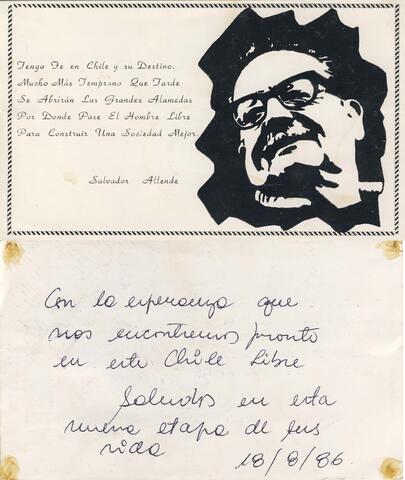 Tengo Fe en Chile y su Destino.
Mucho Más Temprano Que Tarde
Se Abrirán Las Grandes Alamedas
Por Donde Pase El Hombre Libre
Para Construir Una Sociedad Mejor.
Salvador Allende
Con la esperanza que
nos encontremos pronto
en este Chile Libre
Saludos en esta
nueva etapa de tus
vida
18/8/86